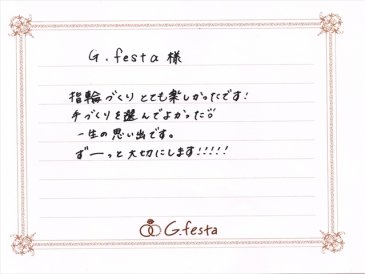 G.festa 様
指輪づくりとても楽しかったです!
手づくりを選んでよかった
一生の思い出です。
ずーっと大切にします!!!!!
G.festa